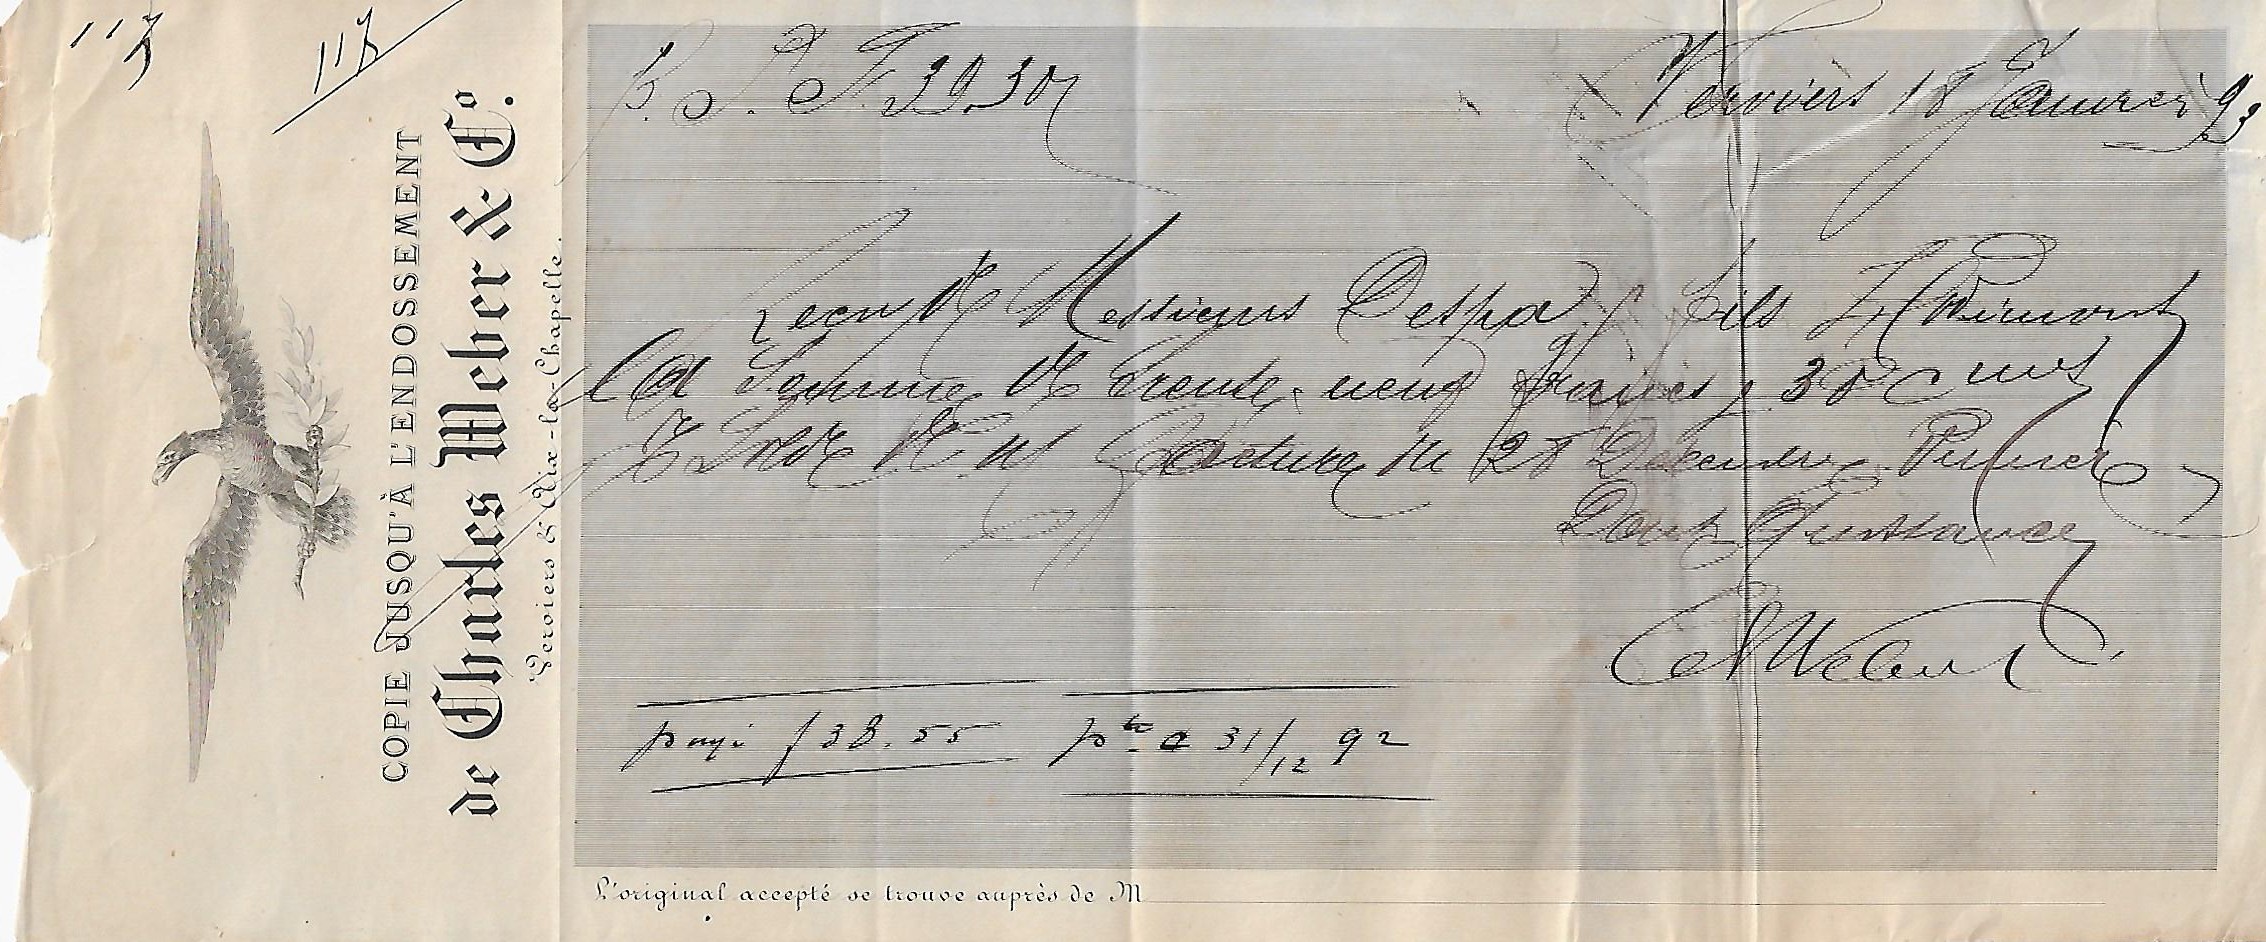 117
117
COPIE JUSQU'À L'ENDOSSEMENT
de Charles Weber & Cº.
Verviers & Aix-la-Chapelle.
B. P. F. 39.30
Verviers 18 Janvier 93
Recu de Messieurs Despa & fils
La Somme de trente neuf francs, 30 cmes
P Solde de n/ facture du 28 Decembre
Dont Quittance
Ch Weber
payé f 38.55 pte a 31/12 92
L'original accepté se trouve auprès de M